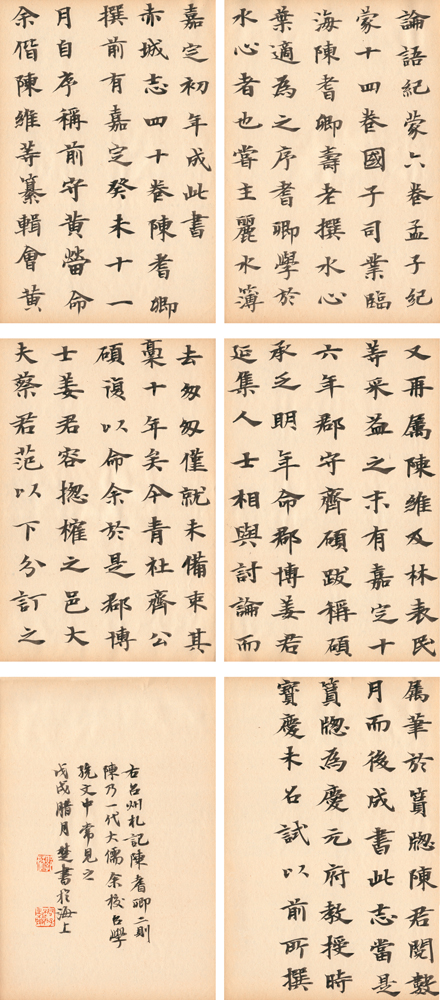 論語紀蒙六卷孟子紀
蒙十四卷國子司業臨
海陳耆卿壽老撰水心
葉適為之序耆卿學於
水心者也嘗主麗水簿
嘉定初年成此書
赤城志四十卷陳耆卿
撰前有嘉定癸未十一
月自序稱前守黃㽦命
余偕陳維等纂輯會黃
去匆匆僅就未備束其
稾十年矣今青社齊公
碩復以命余於是郡博
士姜君容揔榷之邑大
夫蔡君范以下分訂之
又再屬陳維及林表民
等采益之末有嘉定十
六年郡守齊碩跋稱碩
承乏明年命郡博姜君
延集人士相與討論而
屬筆於篔牎陳君閱數
月而後成書此志當是
篔牎為慶元府教授時
寶慶未召試以前所撰
右台州札記陳耆卿二則
陳乃一代大儒余校台學
統文中常見之
戊戌臘月楚書於海上